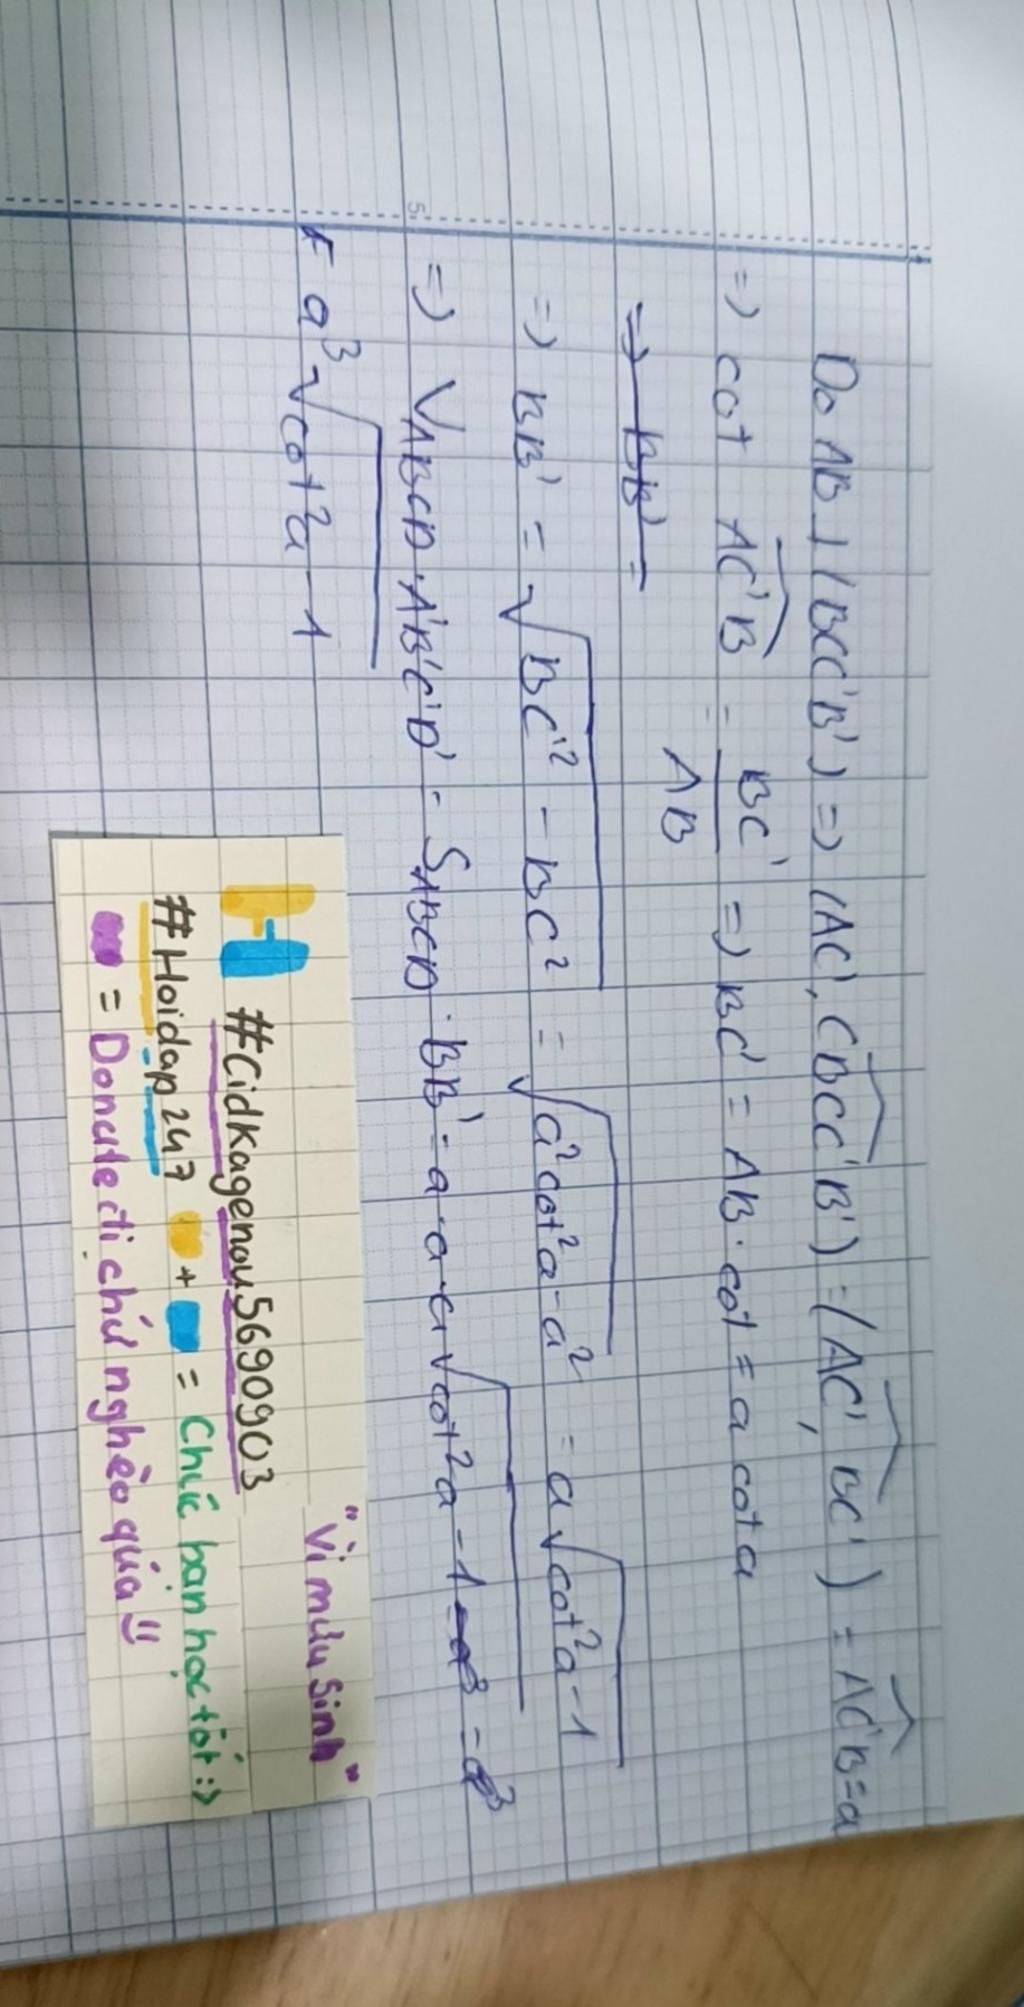 Do AB ⊥ (BCC'B') => (AC', (BCC'B')) = (AC', BC') = AC'B = a
=> cot AC'B = BC'/AB => BC' = AB . cot = a cot a
=> BB' =
=> BB' = √(BC'² - BC²) = √(a²cot²a - a²) = a√(cot²a - 1)
=> VABCD.A'B'C'D' = SABCD . BB' = a.a.a√(cot²a - 1) = a³
= a³√(cot²a - 1)
"Vì mưu sinh"
#Cidkagenou5690903
#Hoidap247 + = Chúc bạn học tốt :>
= Donate đi chứ nghèo quá!!
5